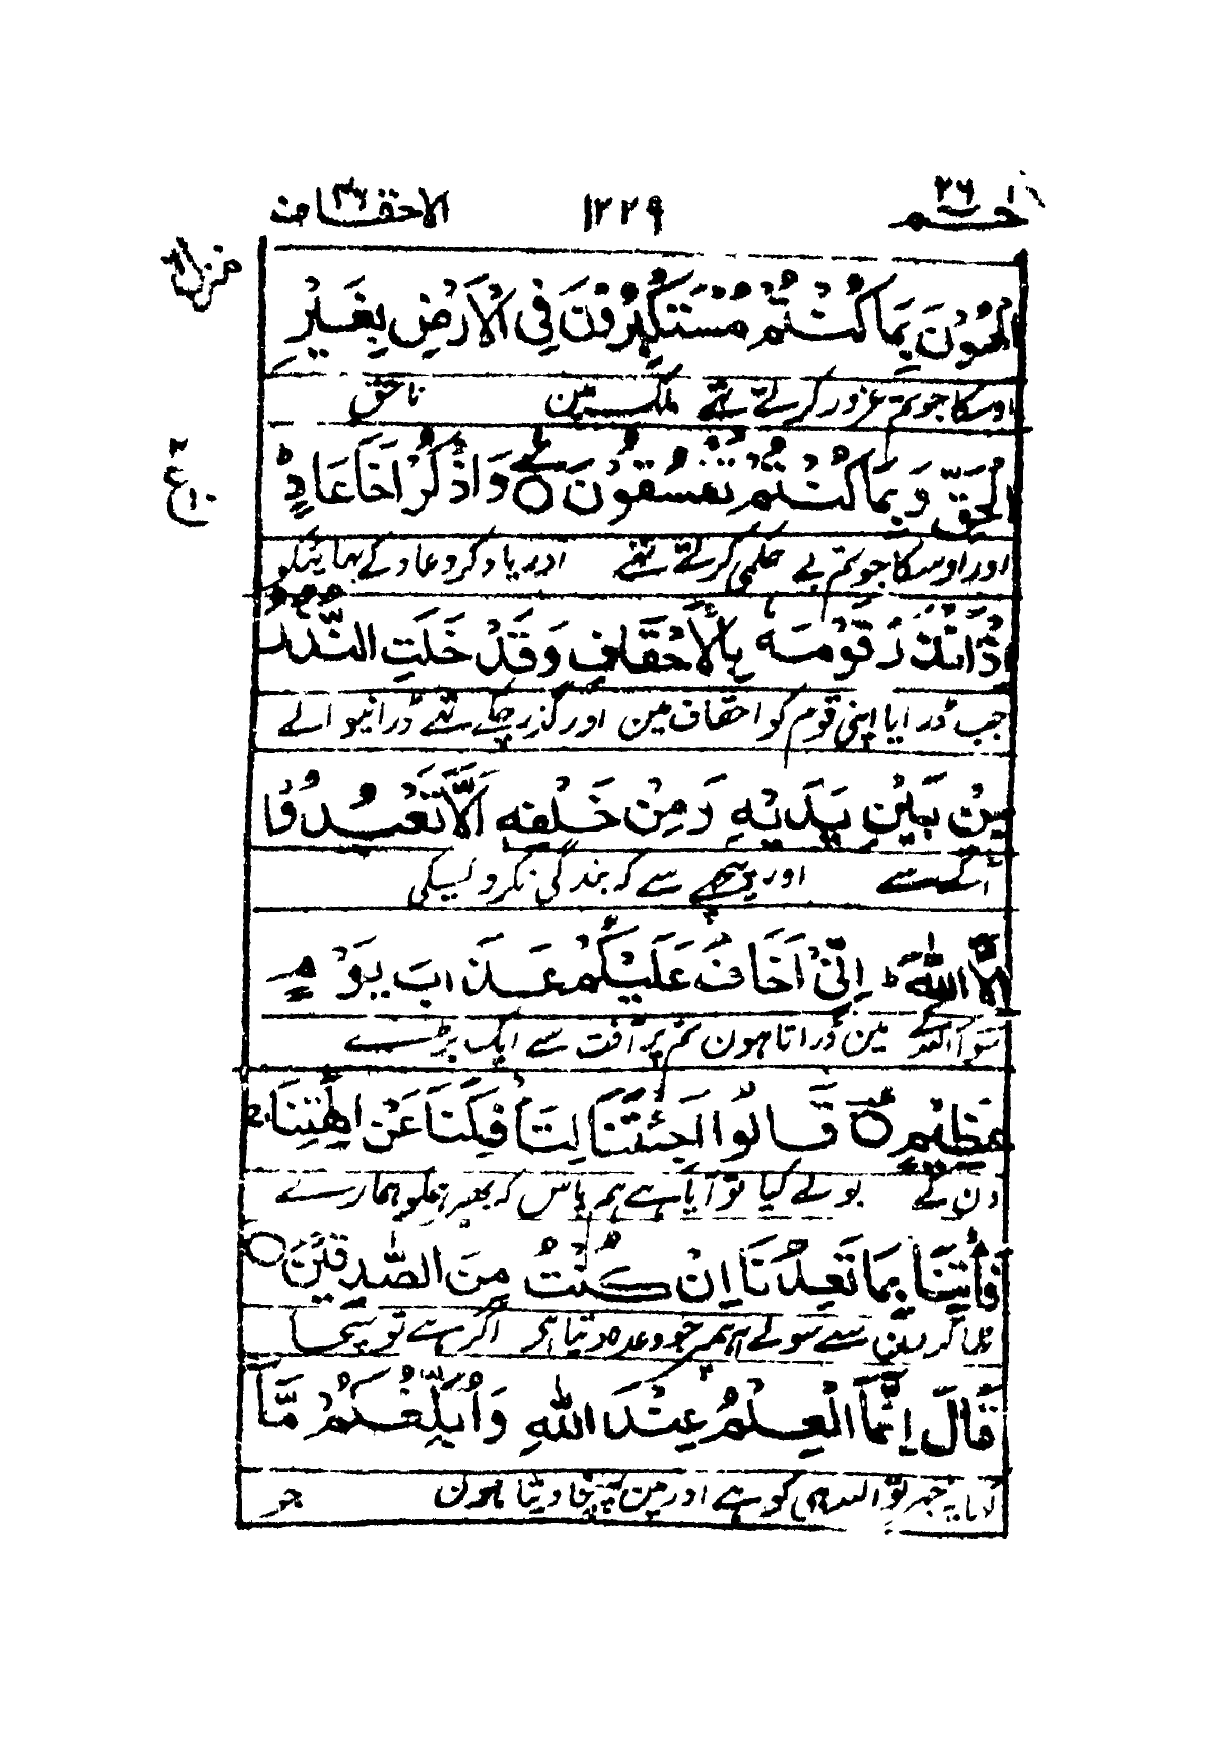 حٰم ٢٦ ١٢٢٩ الاحقاف ٤٦
منزل ٦
الْهُوْنِ بِمَا كُنْتُمْ تَسْتَكْبِرُوْنَ فِي الْاَرْضِ بِغَيْرِ
اوسکا جو تم غرور کرتے تھے ملک مین ناحق
الْحَقِّ وَبِمَا كُنْتُمْ تَفْسُقُوْنَ وَاذْكُرْ اَخَا عَادٍ ط
ع ١٠
اور اوسکا جو تم بے حکمی کرتے تھے اور یاد کر عاد کے بھائیکو
اِذْ اَنْذَرَ قَوْمَهٗ بِالْاَحْقَافِ وَقَدْ خَلَتِ النُّذُرُ
جب ڈرایا اپنی قوم کو احقاف مین اور گذر چکے تھے ڈرانیوالے
مِنْ بَيْنِ يَدَيْهِ وَمِنْ خَلْفِهٖ اَلَّا تَعْبُدُوْا
آگے سے اور پیچھے سے کہ بندگی نکرو کسیکی
اِلَّا اللّٰهَ ط اِنِّيْ اَخَافُ عَلَيْكُمْ عَذَابَ يَوْمٍ
سوا اللہ کے مین ڈراتا ہون تم پر آفت سے ایک بڑے
عَظِيْمٍ قَالُوْا اَجِئْتَنَا لِتَاْفِكَنَا عَنْ اٰلِهَتِنَا ج
دن کے بولے کیا تو آیا ہے ہم پاس کہ پھیرے ہمکو ہمارے
فَاْتِنَا بِمَا تَعِدُنَا اِنْ كُنْتَ مِنَ الصّٰدِقِيْنَ
ٹھاکرون سے سو لے آ ہمپر جو وعدہ دیتا ہی اگر ہے تو سچا
قَالَ اِنَّمَا الْعِلْمُ عِنْدَ اللّٰهِ وَاُبَلِّغُكُمْ مَّا
کہا یہ خبر تو اللہ ہی کو ہے اور مین پہنچا دیتا ہون جو